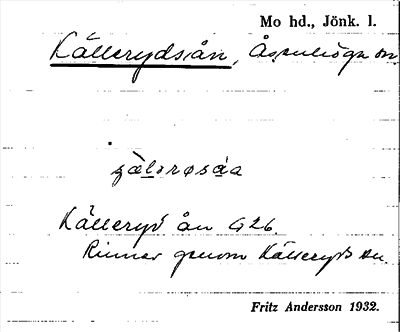 Mo hd., Jönk. l.
Källerydsån, Åspuhöga sn.
Källeryd ån G26.
Rinner genom Källeryds sn.
Fritz Andersson 1932.